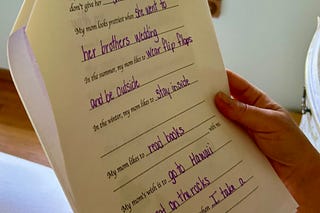 don't give her
My mom looks prettiest when she went to
her brothers wedding
In the summer, my mom likes to wear flip flops
and be outside
In the winter, my mom likes to stay inside
My mom likes to read books with me.
My mom's wish is to go to Hawaii
on the rocks
when I take a